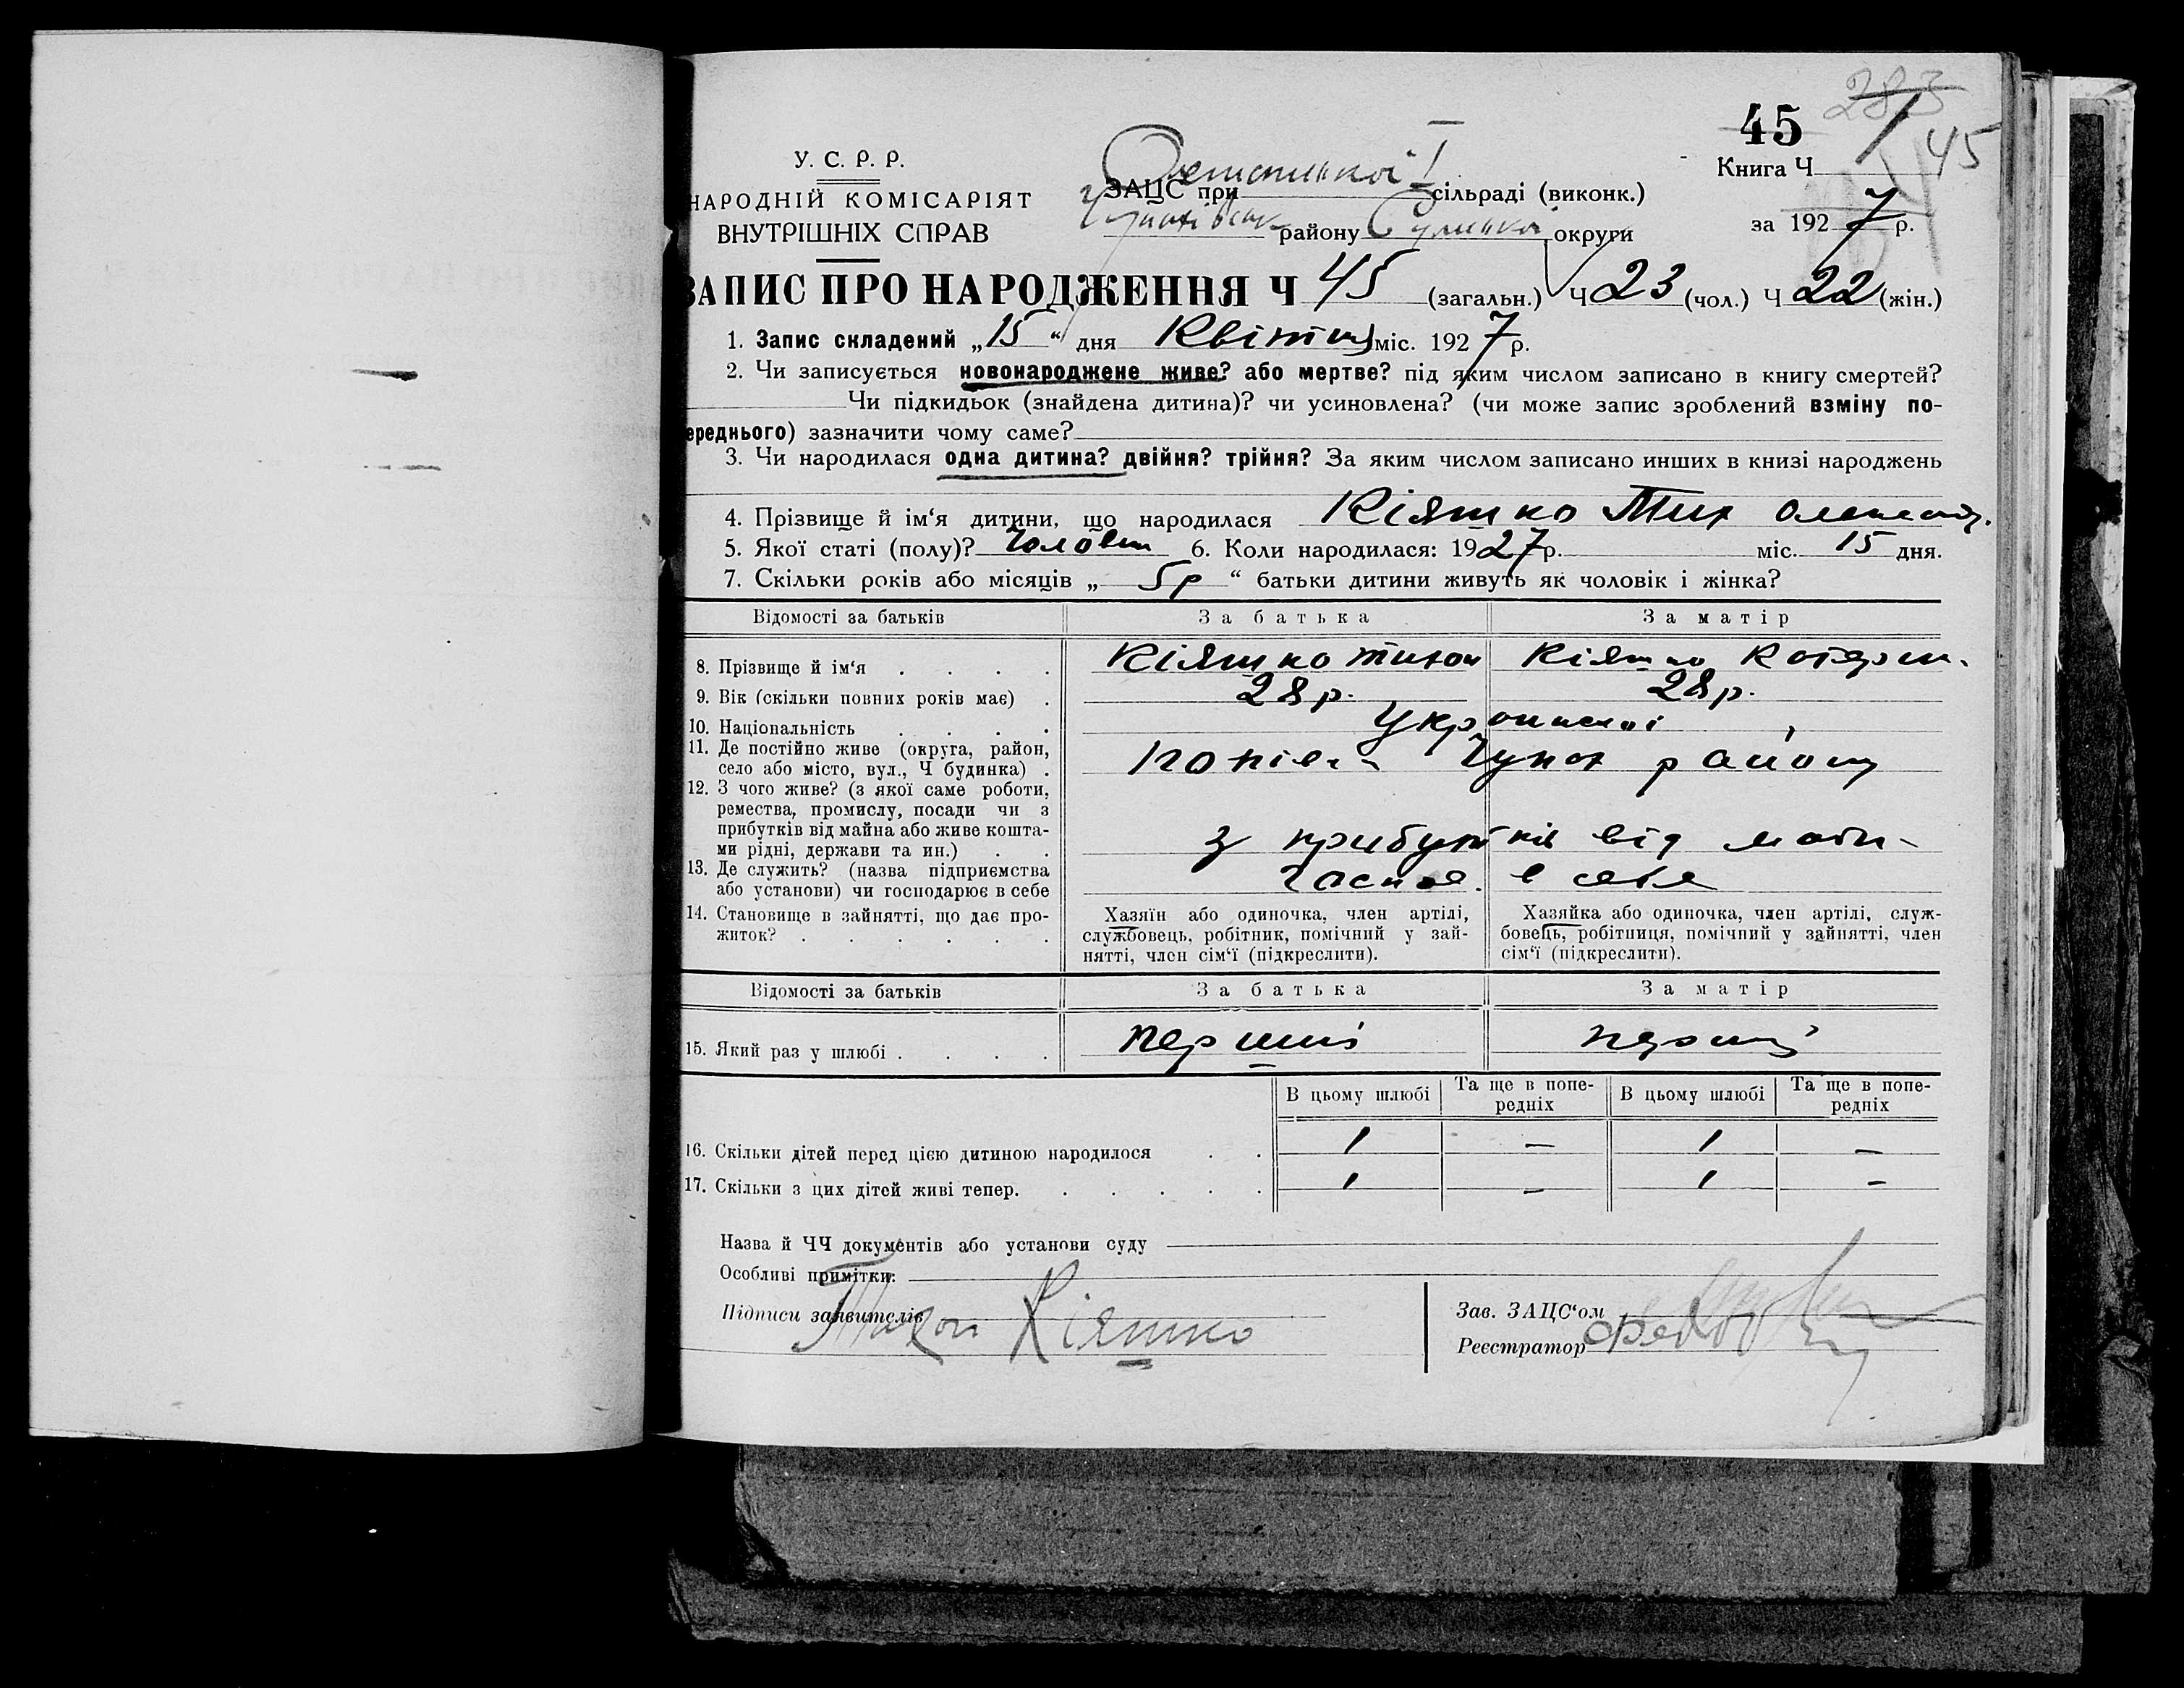 283
45
45
У. С. Р. Р.
НАРОДНІЙ КОМІСАРІЯТ
ВНУТРІШНІХ СПРАВ
ЗАЦС при сільраді (виконк.)
району Сумської округи
Книга Ч 1
за 1927 р.
ЗАПИС ПРО НАРОДЖЕННЯ Ч 45 (загальн.) Ч 23 (чол.) Ч 22 (жін.)
1. Запис складений „15“ дня Квітня міс. 1927 р.
2. Чи записується новонароджене живе? або мертве? під яким числом записано в книгу смертей?
Чи підкидьок (знайдена дитина)? чи усиновлена? (чи може запис зроблений взміну по-
ереднього) зазначити чому саме?
3. Чи народилася одна дитина? двійня? трійня? За яким числом записано инших в книзі народжень
4. Прізвище й ім‘я дитини, що народилася Кіяшко
5. Якої статі (полу)? 6. Коли народилася: 1927 р. міс. 15 дня.
7. Скільки років або місяців „ 5 р “ батьки дитини живуть як чоловік і жінка?
Відомості за батьків За батька За матір
8. Прізвище й ім‘я . . . . Кіяшко Тихон Кіяшко
9. Вік (скільки повних років має) . 28 р. 28 р.
10. Національність . . . .
11. Де постійно живе (округа, район,
село або місто, вул., Ч будинка) . району
12. З чого живе? (з якої саме роботи,
ремества, промислу, посади чи з
прибутків від майна або живе кошта-
ми рідні, держави та ин.) . . з прибутків від
13. Де служить? (назва підприємства
або установи) чи господарює в себе в себе
14. Становище в зайнятті, що дає про-
житок? . . . . . .
Хазяїн або одиночка, член артілі,
службовець, робітник, помічний у зай-
нятті, член сім‘ї (підкреслити).
Хазяйка або одиночка, член артілі, служ-
бовець, робітниця, помічний у зайнятті, член
сім‘ї (підкреслити).
Відомості за батьків За батька За матір
15. Який раз у шлюбі . . . . перший
В цьому шлюбі Та ще в попе-
редніх В цьому шлюбі Та ще в попе-
редніх
16. Скільки дітей перед цією дитиною народилося . . 1 — 1 —
17. Скільки з цих дітей живі тепер. . . . . . 1 — 1 —
Назва й ЧЧ документів або установи суду
Особливі примітки:
Підписи заявителів Тихон Кіяшко
Зав. ЗАЦС‘ом
Реєстратор